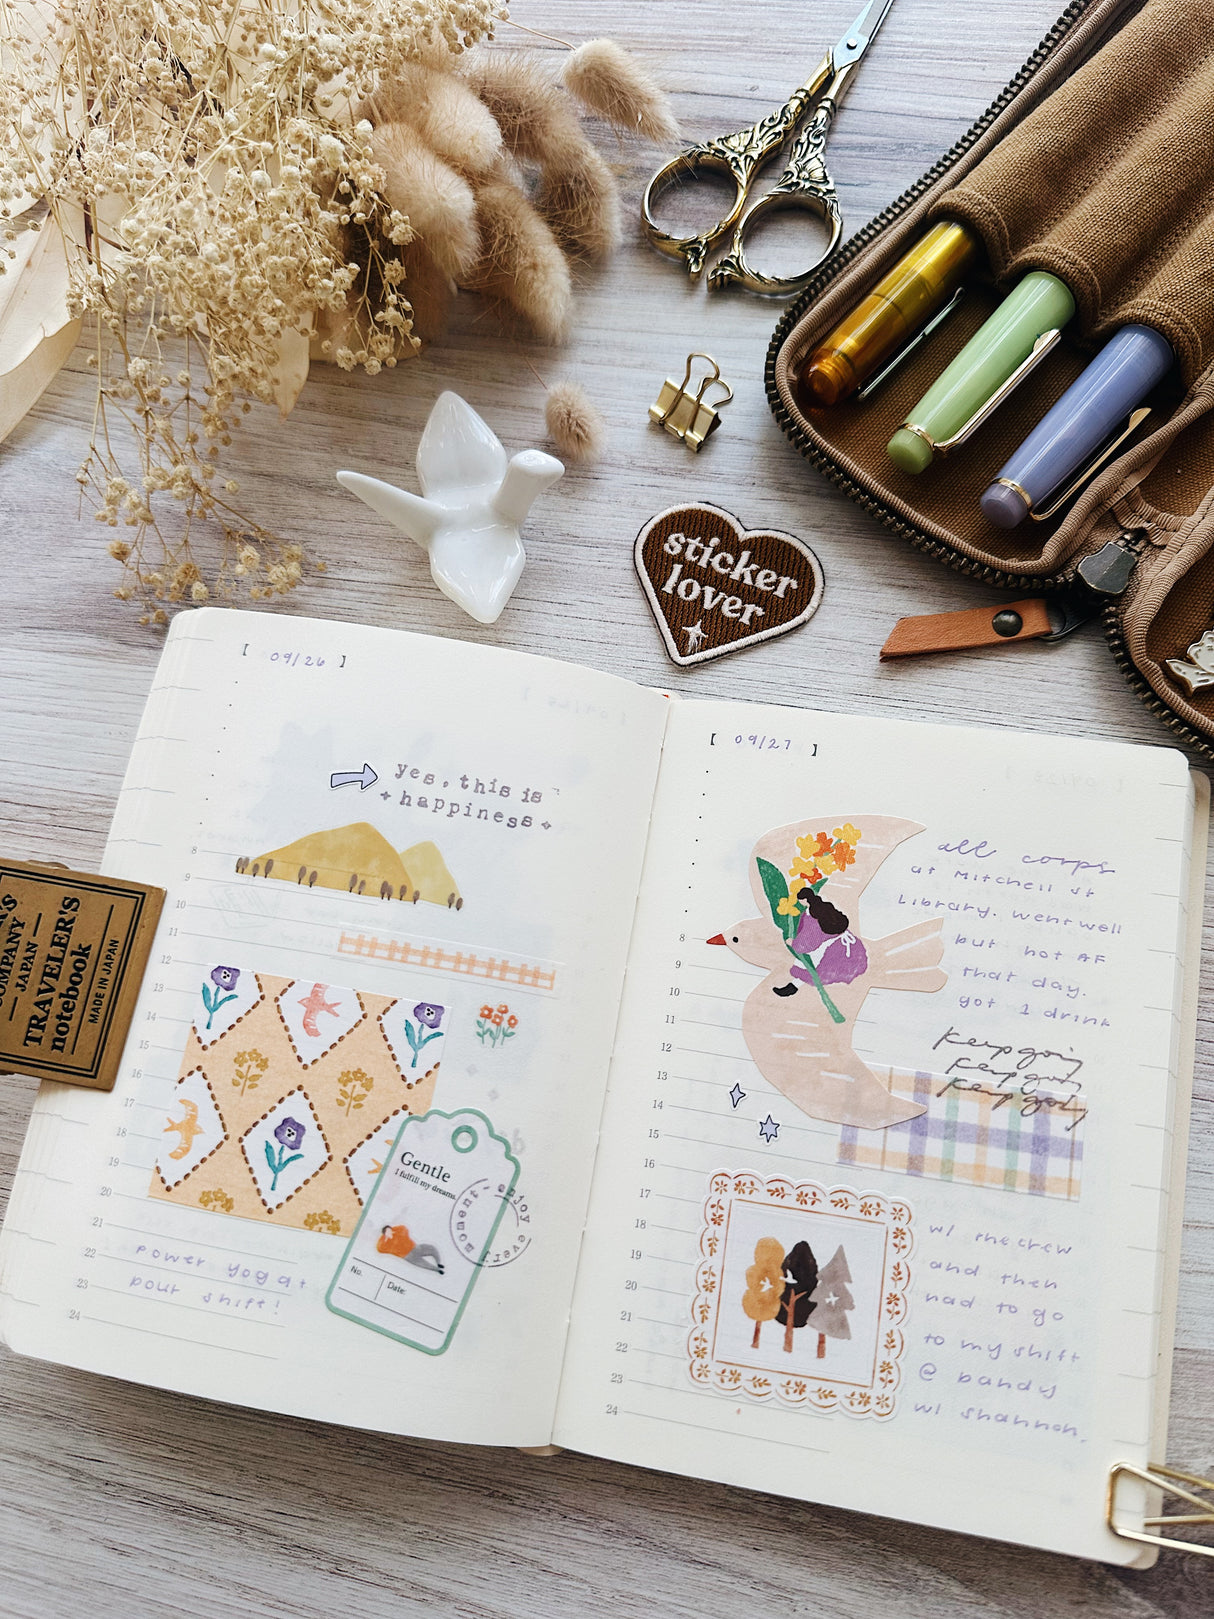 sticker
lover
COMPANY
— JAPAN —
TRAVELER'S
notebook
MADE IN JAPAN
【 09/26 】
yes, this is
+ happiness +
8
9
10
11
12
13
14
15
16
17
18
19
20
21
22
23
24
Gentle
I fulfill my dreams.
enjoy every moment.
No.
Date:
power yoga +
pour shift!
【 09/27 】
all corps
at Mitchell St
Library. went well
but hot AF
that day.
got 1 drink
keep going
keep going
keep going
w/ the crew
and then
had to go
to my shift
@ bandy
w/ shannon.
8
9
10
11
12
13
14
15
16
17
18
19
20
21
22
23
24